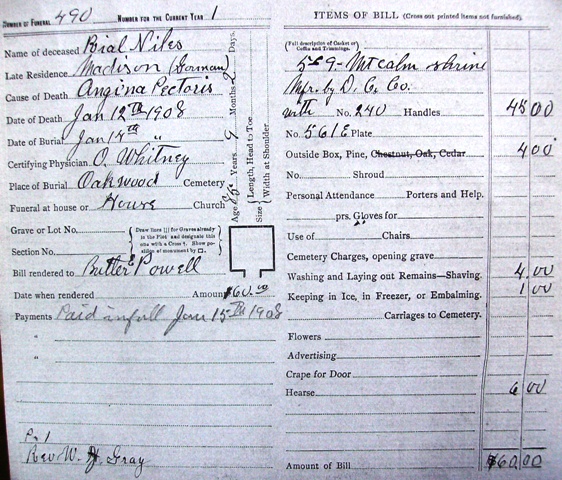 NUMBER OF FUNERAL 490 NUMBER FOR THE CURRENT YEAR 1
Name of deceased Bial Niles
Late Residence Madison (Gorman)
Cause of Death Angina Pectoris
Date of Death Jan 12th 1908
Date of Burial Jan 14th "
Certifying Physician O. Whitney
Place of Burial Oakwood Cemetery
Funeral at house or House Church
Age Years 9 Months 2 Days.
Size { Length, Head to Toe
Width at Shoulder
Grave or Lot No.
Section No.
{ Draw lines [|] for Graves already in the Plot and designate this one with a Cross †. Show position of monument by □. }
Bill rendered to Butler & Powell
Date when rendered Amount $60.00
Payments Paid in full Jan 15th 1908
"
"
Rev W. H. Gray
ITEMS OF BILL (Cross out printed items not furnished).
(Full description of Casket or Coffin and Trimmings.
529- Mt calm shrine
Mfr. by D. C. Co.
with No. 240 Handles 45 00
No. 561E Plate
Outside Box, Pine, Chestnut, Oak, Cedar 4 00
No. Shroud
Personal Attendance Porters and Help.
prs. Gloves for
Use of Chairs.
Cemetery Charges, opening grave
Washing and Laying out Remains—Shaving. 4.00
Keeping in Ice, in Freezer, or Embalming. 1 00
Carriages to Cemetery.
Flowers
Advertising
Crape for Door
Hearse 6 00
Amount of Bill $60.00